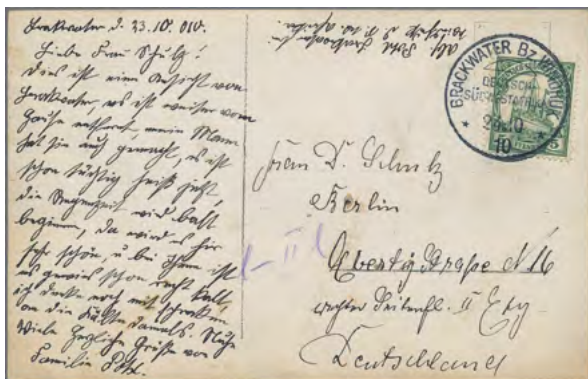 Brakwater d. 23.10.010.
Liebe Frau Schulz!
Dies ist eine Ansicht von
Brakwater, es ist weiter vom
Hause entfernt, mein Mann
hat sie auch gemacht, es ist
schon tüchtig heiß jetzt,
die Regenzeit wird bald
beginnen, da wird es hier
sehr schön, u bei Ihnen ist
es gewiß schon recht kalt,
ich denke noch mit Schrecken
an die Kälte damals.
Viele herzliche Grüße von
Familie
BRACKWATER Bz. WINDHUK
DEUTSCH-
SÜDWESTAFRIKA
10
5
Frau D. Schulz
Berlin
Ebertystraße N 16
rechter Seitenfl. II
Deutschland